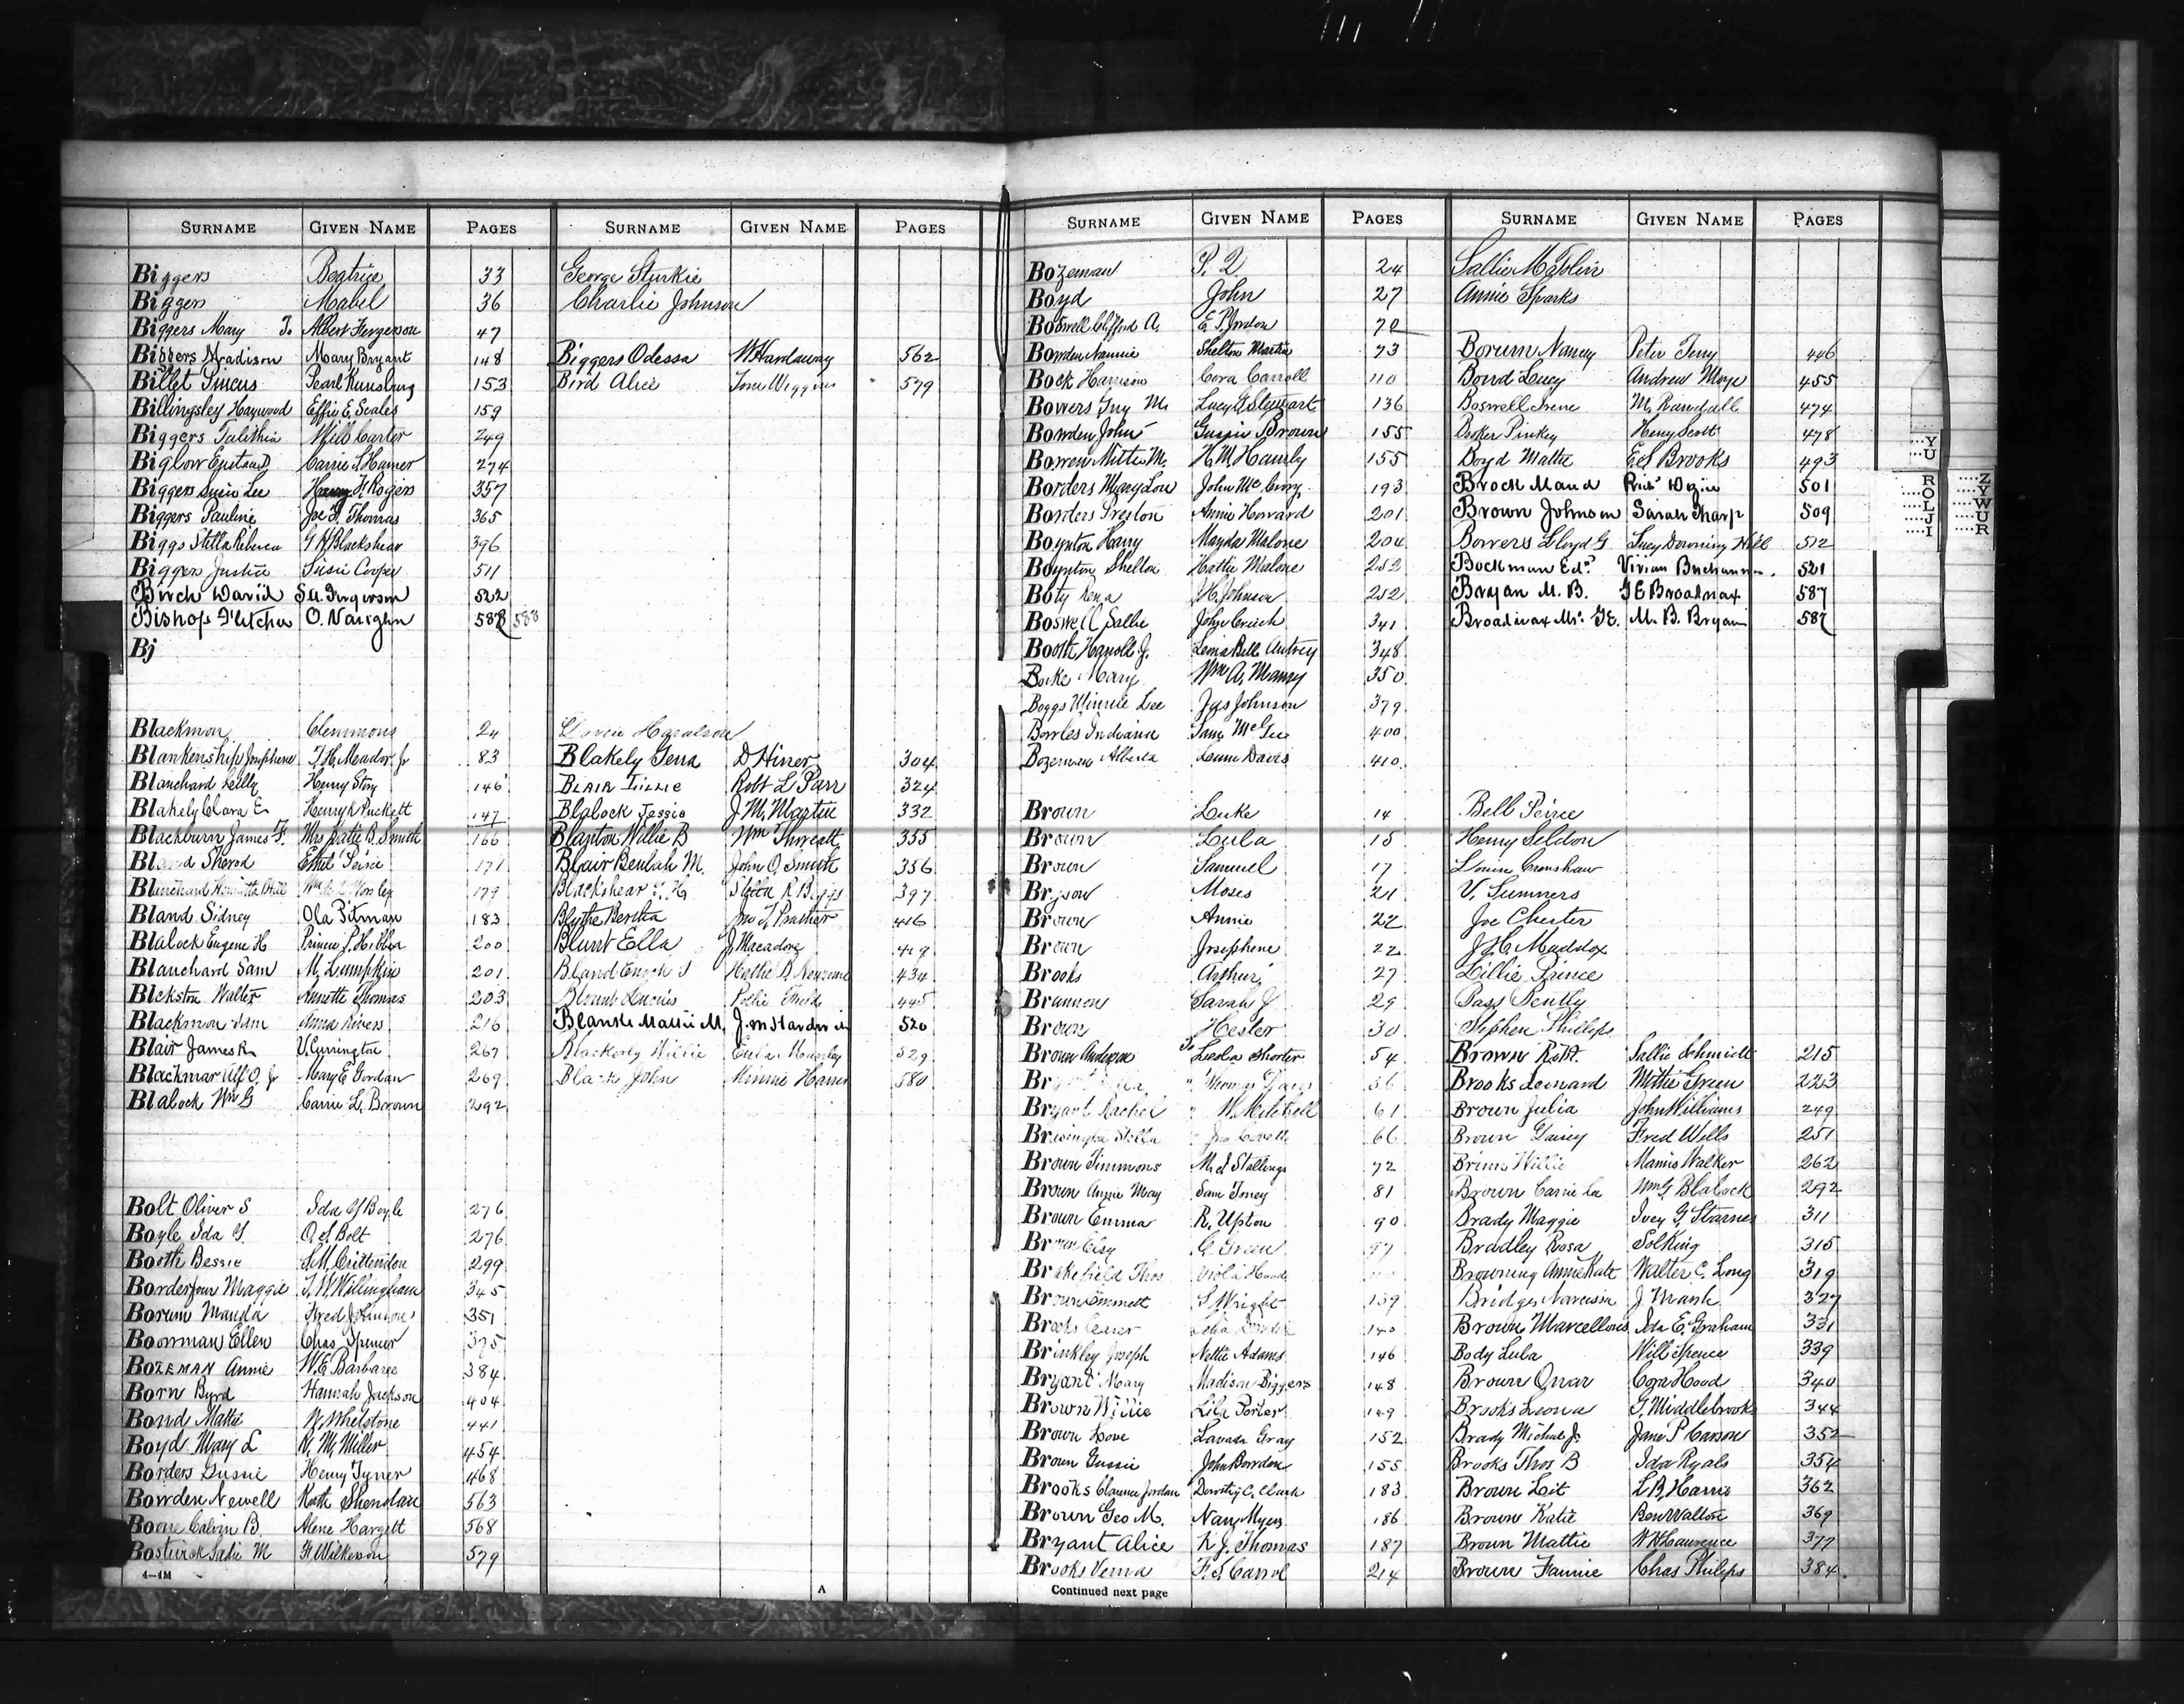 SURNAME GIVEN NAME PAGES SURNAME GIVEN NAME PAGES
Biggers Beatrice 33 George Sturkie
Biggers Mabel 36 Charlie Johnson
Biggers Mary To Albert Fergerson 47
Biggers Madison Mary Bryant 148 Biggers Odessa W Hardaway 562
Billet Pincus Pearl 153 Bird Alice Tom Wiggins 579
Billingsley Haywood Effie E. Scales 159
Biggers Talithia Will Carter 249
Biglow Carrie S Hamer 274
Biggers Susie Lee Harry F. Rogers 357
Biggers Pauline Joe F. Thomas 365
Biggs Stella Rebecca G H Blackshear 396
Biggers Justice Susie Cooper 511
Birch David 522
Bishop Fletcher O. Vaughn 588 588
Bj
Blackmon Clemmons 24
Blankenship Josephene T. H. Meador Jr 83 Blakely Gena D Hiner 304
Blanchard Lilly Henry Story 146 BLAIR LILLIE Robt L Parr 324
Blakely Clara E Henry Puckett 147 Blalock Jessie J. M. Martin 332
Blackburn James F. Mrs Katie B. Smith 166 Blanton Willie B Wm Threatt 355
Bland Sherod Ethel 171 Blair Beulah M. John O. Smith 356
Blanchard 179 Blackshear G H Stella R Biggs 397
Bland Sidney Ola Pitman 183 Blythe Bertha 416
Blalock Eugene H 200 Blunt Ella 429
Blanchard Sam M. Lumpkin 201 Bland Enoch 434
Blckston Walter Annette Thomas 203 Blount Lucius 445
Blackmon Sam Anna Rivers 216 520
Blair James R. V. Currington 267 Willie Eula 529
Blackmar Alf O. Jr Mary E. Gordan 269 Black John Minnie 580
Blalock Wm G Carrie L. Brown 292
Bolt Oliver S Ida G Boyle 276
Boyle Ida G. O. S. Bolt 276
Booth Bessie S. M. Crittendon 299
Maggie T. W. Willingham 345
Borum Mauda Fred Johnson 351
Boorman Ellen Chas Spencer 375
BOZEMAN Annie W. E. Barbaree 384
Born Byrd Hannah Jackson 404
Bond Mattie W. Whelstone 441
Boyd Mary L R. M. Miller 454
Borders Gussie Henry Tyner 468
Bowden Newell Ruth Sheridan 563
Boone Calvin B. Alene Hargett 568
Bostwick Sadie M H Wilkerson 579
4—4M A
SURNAME GIVEN NAME PAGES SURNAME GIVEN NAME PAGES
Bozeman P. Q 24 Sallie
Boyd John 27 Annie Sparks
Boswell Clifford A. E. P. Jordon 70
Bowden Nannie Shelton Martin 73 Borum Nancy Peter Terry 446
Bock Harrison Cora Carroll 110 Bond Lucy Andrew Moye 455
Bowers Guy M. Lucy G Stewart 136 Boswell Irene M. Randall 474
Bowden John Gussie Brown 155 Booker Pinkey Henry Scott 478
Bowen Mittie M. H. M. Hamby 155 Boyd Mattie Ed Brooks 493
Borders Mary Lou John McCrory 193 Brock Maud 501
Borders Preston Annie Howard 201 Brown Johnson Sarah Tharp 509
Boynton Harry Mayda Malone 204 Bowers Lloyd G Lucy Downing Hill 512
Boynton Shelton Hattie Malone 252 Bockman Ed Vivian Buchannan 521
Boty Lena H. Johnson 252 Bryan M. B. G E Broadnax 587
Boswell Sallie John Creech 341 Broadnax Mr. G E. M. B. Bryan 587
Booth Harroll J. Lenia Belle Autrey 348
Mary Wm A. Massy 350
Boggs Winnie Lee Jas Johnson 379
Bowles Indiana Sam McGee 400
Bozeman Alberta Lenne Davis 410
Brown Luke 14 Bell Peirce
Brown Lula 15 Henry Seldon
Brown Samuel 17 Crenshaw
Bryson Moses 21 V. Summers
Brown Annie 22 Joe Chester
Brown Josephene 22 J. H. Maddox
Brooks Arthur 27 Lillie Prince
Brannen Sarah J 29 Pass Bently
Brown Hester 30 Stephen Phillips
Brown Anderson To Leola Shorter 54 Brown Robt. Sallie Schmidt 215
Br 56 Brooks Leonard Mittie Green 223
Bryant Rachel " W. Mitchell 61 Brown Julia John Williams 249
Stella " 66 Brown Daisy Fred Wells 251
Brown Simmons M. J Stallings 72 Brims Willie Mamie Walker 262
Brown Annie May Sam Toney 81 Brown Carrie La Wm G Blalock 292
Brown Emma R. Upton 90 Brady Maggie Ivey G. Starnes 311
Brown G. Green 97 Bradley Rosa Sol King 315
Brakefield Thos Viola Browning Annie Kate Walter C. Long 319
Brown Emmett S Wright 139 Bridges Narcissa J Mank 327
Brooks 140 Brown Marcellous Ida E. Graham 331
Brinkley Joseph Nettie Adams 146 Body Lula Will Spence 339
Bryant Mary Madison Biggers 148 Brown Quar Cora Hood 340
Brown Willie Lila Porter 149 Brooks Leona G. Middlebrooks 344
Brown Love Lavada Gray 152 Brady Michael Jr. Jane P Carson 352
Brown Gussie John Bowden 155 Brooks Thos B Ida Ryals 354
Brooks Clarence Jordan Dorothy C. Clark 183 Brown Lit L B. Harris 362
Brown Geo M. Nany Myers 186 Brown Katie Ben Walton 369
Bryant Alice K J. Thomas 187 Brown Mattie W H Laurence 377
Brooks Verna F. S. Carrol 214 Brown Fannie Chas Philips 384
Continued next page